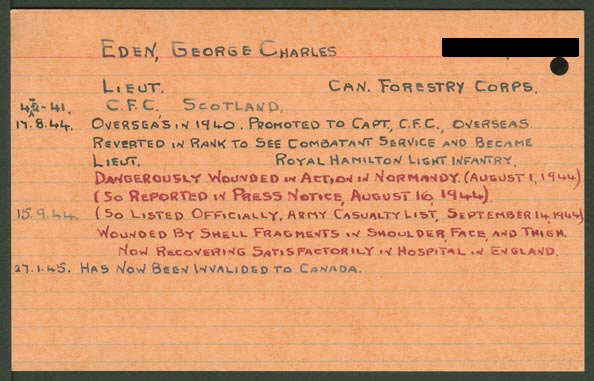 EDEN, GEORGE CHARLES
LIEUT. CAN. FORESTRY CORPS.
C.F.C. SCOTLAND.
17.8.44. OVERSEAS IN 1940. PROMOTED TO CAPT., C.F.C., OVERSEAS.
REVERTED IN RANK TO SEE COMBATANT SERVICE AND BECAME
LIEUT. ROYAL HAMILTON LIGHT INFANTRY.
DANGEROUSLY WOUNDED IN ACTION IN NORMANDY. (AUGUST 1, 1944)
(SO REPORTED IN PRESS NOTICE, AUGUST 16, 1944).
15.9.44. (SO LISTED OFFICIALLY, ARMY CASUALTY LIST, SEPTEMBER 14, 1944)
WOUNDED BY SHELL FRAGMENTS IN SHOULDER, FACE, AND THIGH.
NOW RECOVERING SATISFACTORILY IN HOSPITAL IN ENGLAND.
27.1.45. HAS NOW BEEN INVALIDED TO CANADA.